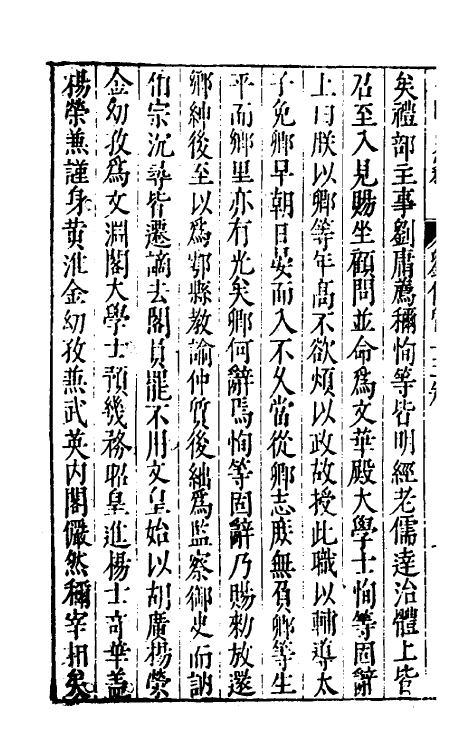 矣禮部主事劉庸薦稱恂等皆明經老儒達治體上皆
召至入見賜坐顧問並命爲文華殿大學士恂等固辭
上曰朕以卿等年高不欲煩以政故授此職以輔導太
子免卿早朝日晏而入不久當從卿志庶無負卿等生
平而鄉里亦有光矣卿何辭焉恂等固辭乃賜勑放還
鄉紳後至以爲鄠縣教諭仲質後絀爲監察御史而訥
伯宗沉尋皆遷謫去閣員罷不用文皇始以胡廣楊榮
金幼孜爲文淵閣大學士預幾務昭皇進楊士奇華蓋
楊榮兼謹身黃淮金幼孜兼武英内閣儼然稱宰相矣